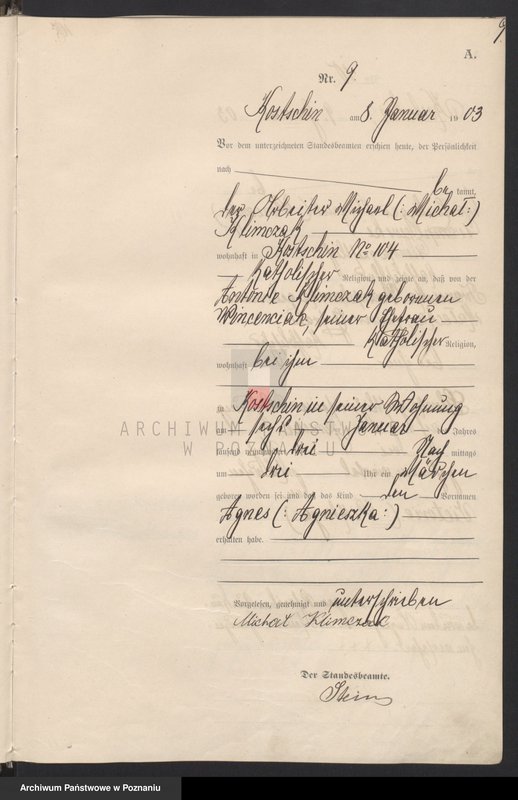 9
A.
Nr. 9.
Kostschin am 8. Januar 1903
Vor dem unterzeichneten Standesbeamten erschien heute, der Persönlichkeit
nach
be kannt,
der Arbeiter Michael (: Michał :)
Klimczak
wohnhaft in Kostschin No 104
katholischer Religion, und zeigte an, daß von der
Antonie Klimczak geborenen
Wincenciak, seiner Ehefrau
katholischer Religion,
wohnhaft bei ihm
zu Kostschin in seiner Wohnung
am sechs Januar des Jahres
tausend neunhundert drei Nach mittags
um drei Uhr ein Mädchen
geboren worden sei und daß das Kind den Vornamen
Agnes (: Agnieszka :)
erhalten habe.
Vorgelesen, genehmigt und unterschrieben
Michał Klimczak
Der Standesbeamte.
Stein
ARCHIWUM PAŃSTWOWE
W POZNANIU
Archiwum Państwowe w Poznaniu